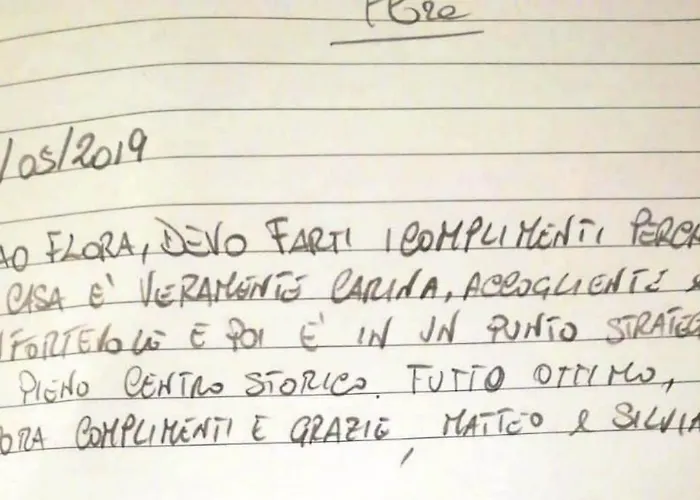 /05/2019
AO FLORA, DEVO FARTI I COMPLIMENTI PERCH
CASA E' VERAMENTE CARINA, ACCOGLIENTE E
FORTEVOLE E POI E' IN UN PUNTO STRATEG
PIENO CENTRO STORICO. TUTTO OTTIMO,
ORA COMPLIMENTI E GRAZIE, MATTEO & SILVIA